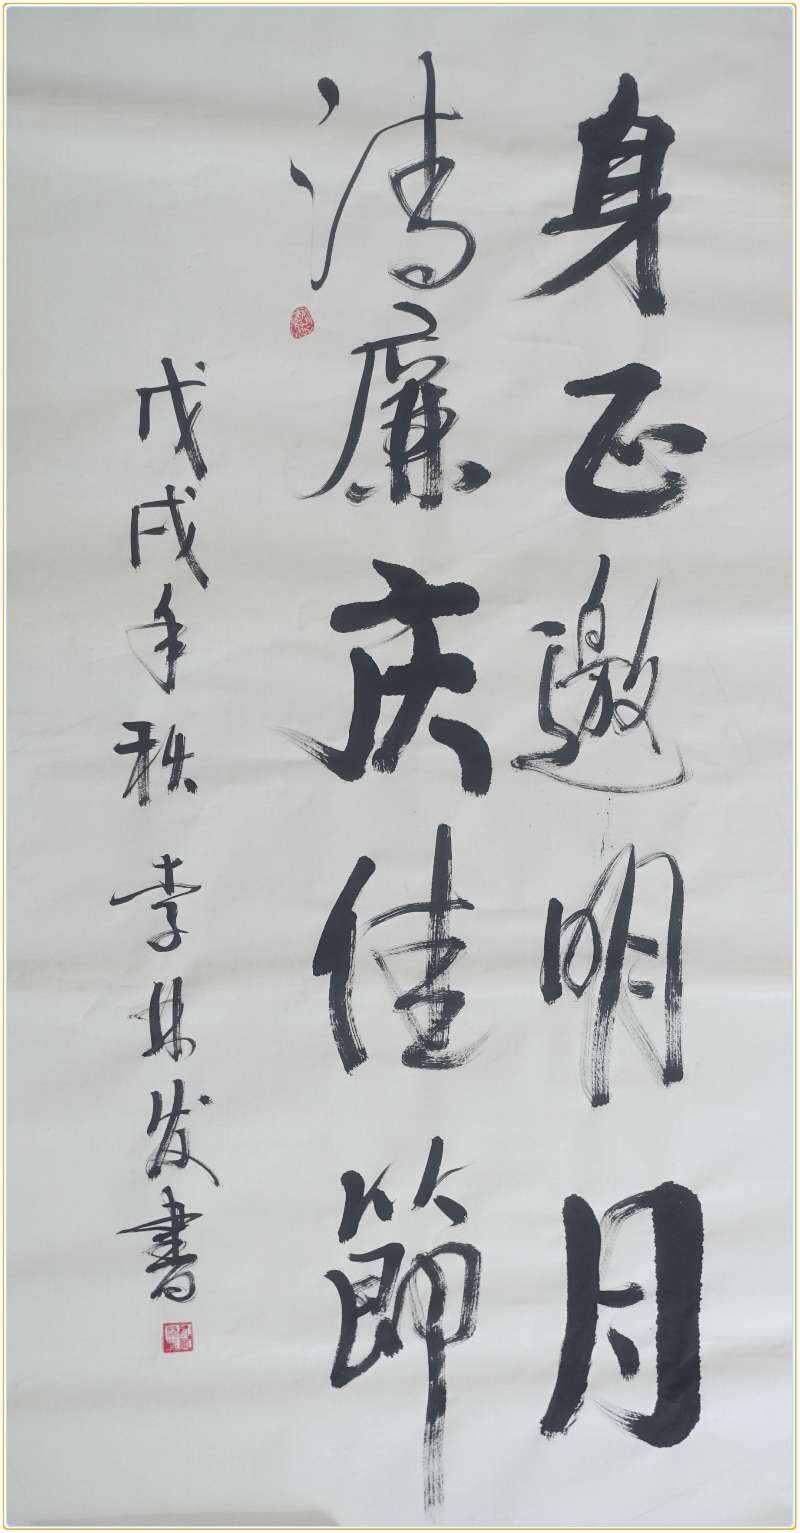 身正邀明月
清廉庆佳節
戊戌年秋 李林发書